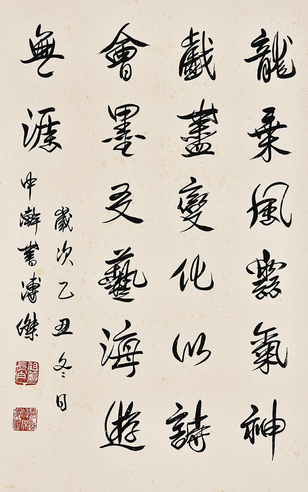 龍乘風氣神
戲盡變化以詩
會墨友藝海遊
無涯
歲次乙丑冬月
中澣書溥傑